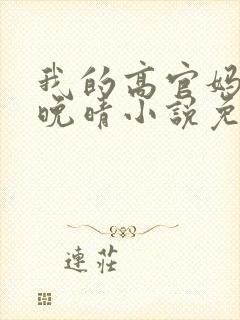 我的高官妈
晚晴小说免
连庄